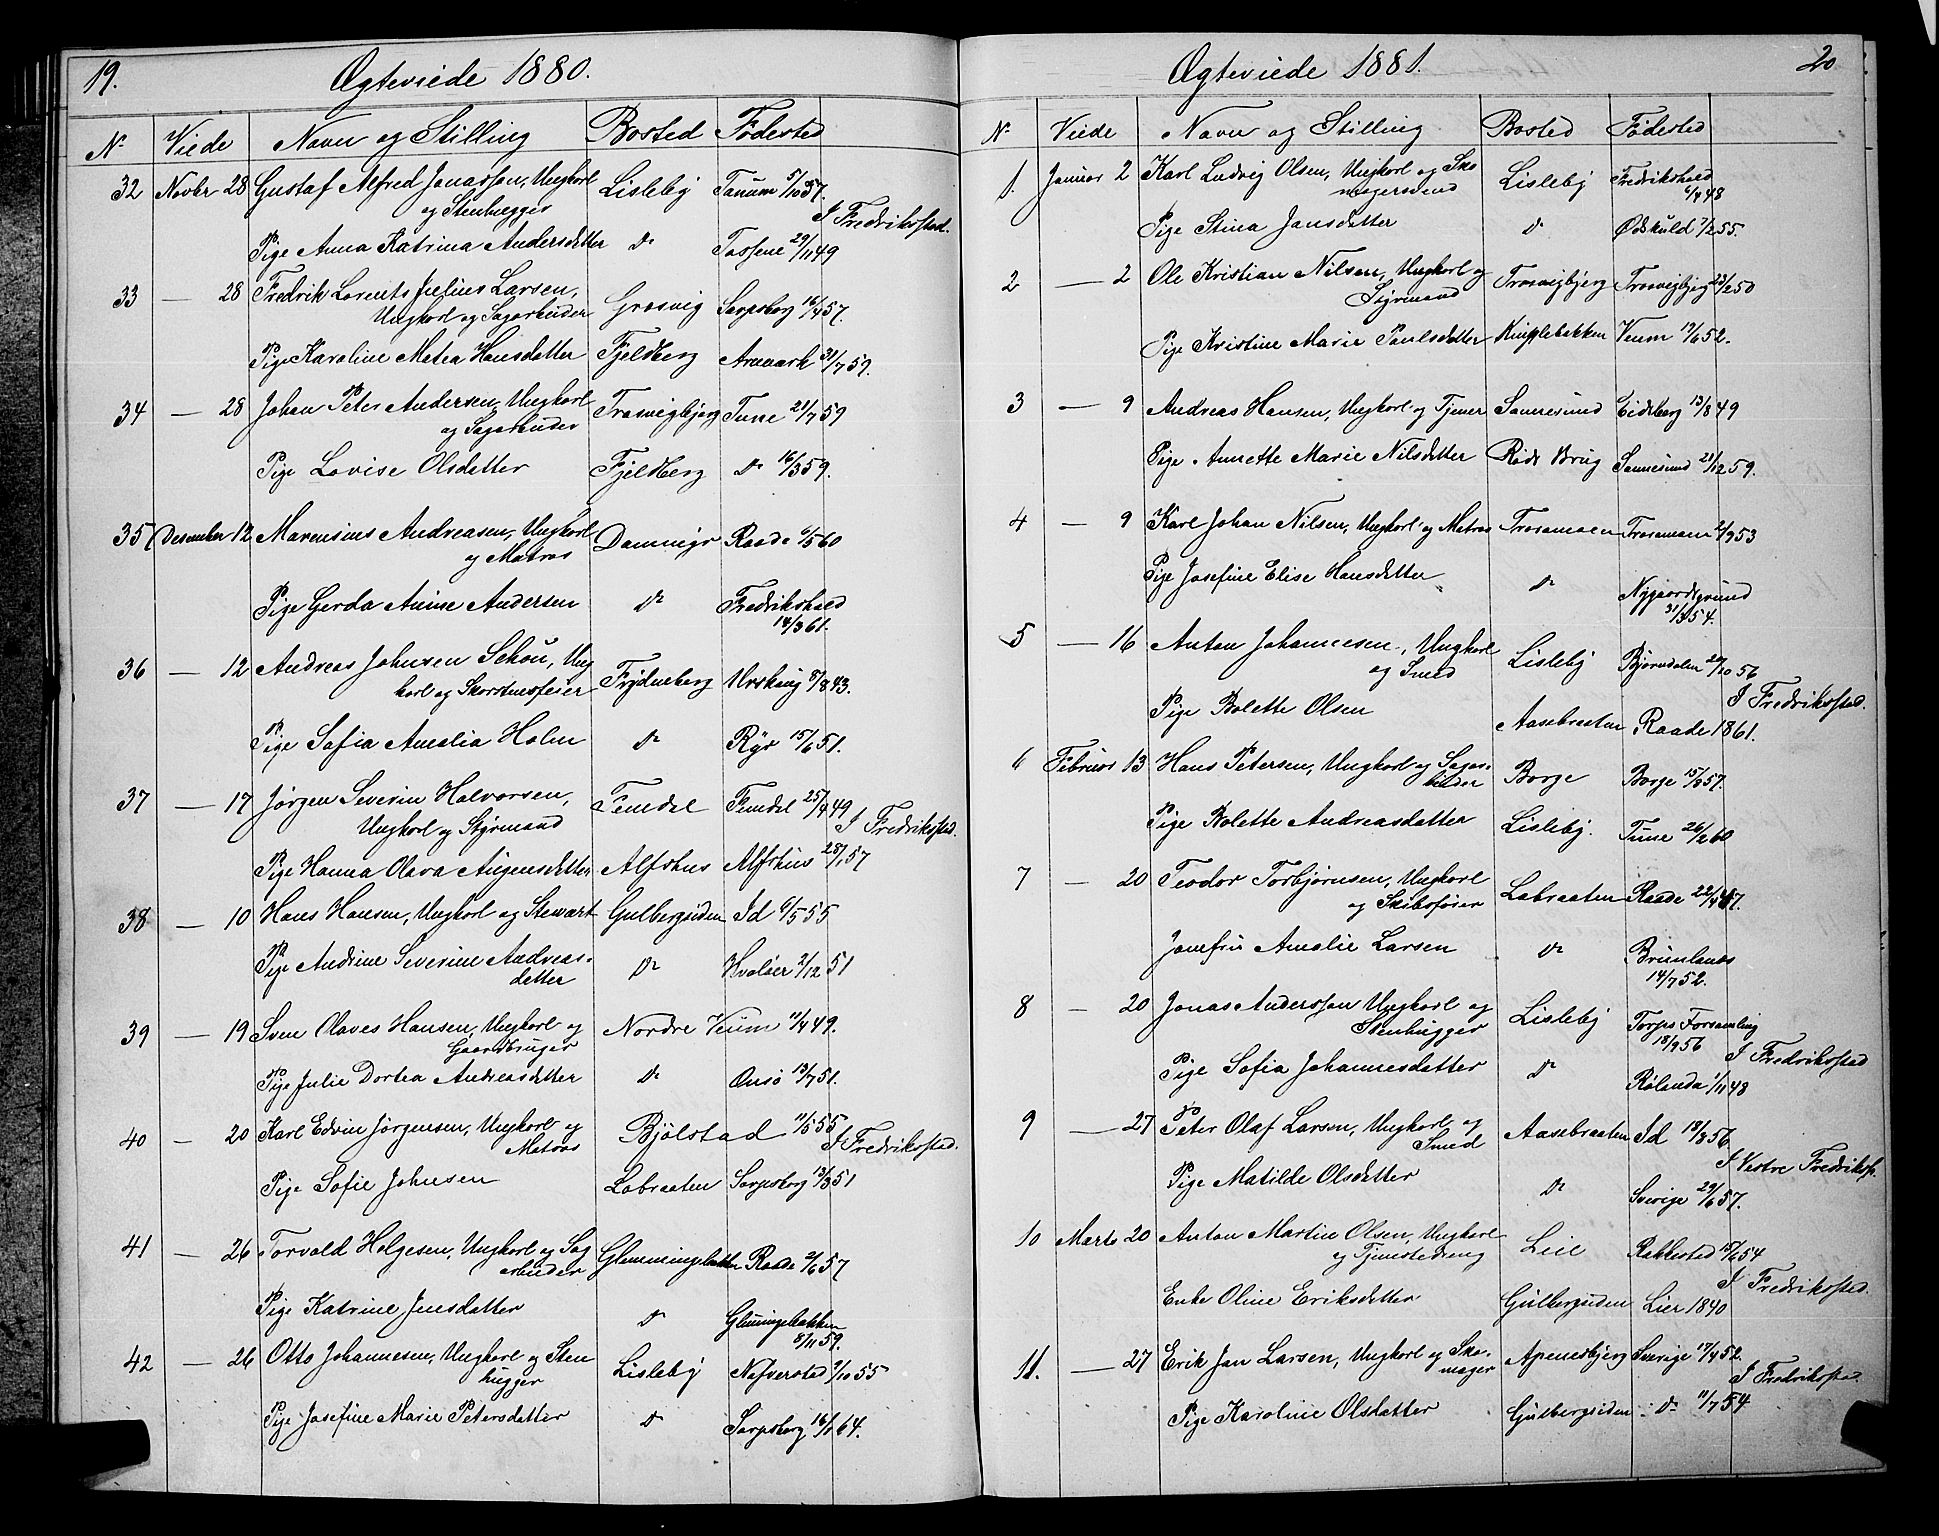 19. Ægteviede 1880.
No Viede Navn og Stilling Bosted Fødested
32 Novbr 28 Gustaf Alfred Jonassen, Ungkarl Lisleby Tanum 5/10 57.
og Stenhugger
I Fredrikstad.
Pige Anna Katrina Andersdatter do Tossene 29/11 49
33 — 28 Fredrik Lorents Julius Larsen, Græsvig Sarpsborg 16/4 57.
Ungkarl og Sagarbeider
Pige Karoline Matea Hansdatter Fjeldberg Aremark 31/7 59.
34 — 28 Johan Peter Andersen, Ungkarl Trosvigbjerg Tune 21/7 59
og Sagarbeider
Pige Lovise Olsdatter Fjeldberg do 16/3 59.
35 Desember 12 Marensius Andreasen, Ungkarl Dammyr Raade 6/5 60
og Matros
Pige Gerda Anine Andersen do Fredrikshald
14/3 61.
36 — 12 Andreas Johnsen Schou, Ung Frydenberg Urskoug 5/8 43.
karl og Skorstensfeier
Pige Sofia Amalia Holm do Ryr 15/6 51.
37 — 17 Jørgen Severin Halvorsen, Femdal Femdal 25/9 49
Ungkarl og Styrmand
I Fredrikstad.
Pige Hanna Olava Augensdatter Alfshus Alfshus 28/1 57
38 — 10 Hans Hansen, Ungkarl og Stewart Gulbergsiden Id 6/5 55
Pige Andrine Severine Andreas- do Hvaløer 2/12 51
datter
39 — 19 Sven Olaves Hansen, Ungkarl og Nordre Veum 11/4 49.
Gaardbruger
Pige Julie Dortea Andreasdatter do Onsø 13/7 51.
40 — 20 Karl Edvin Jørgensen, Ungkarl og Bjølstad 11/5 55
Matros
I Fredrikstad.
Pige Sofie Johnsen Labraaten Sarpsborg 13/3 51
41 — 26 Torvald Helgesen, Ungkarl og Sag Glemmingebakken Raade 2/6 57
arbeider
Pige Katrine Jensdatter do Glemingebakken
8/11 59.
42 — 26 Otto Johannesen, Ungkarl og Sten Lisleby Nafverstad 7/10 55
hugger
Pige Josefine Marie Petersdatter do Sarpsborg 16/1 64.
Ægteviede 1881. 20
No Viede Navn og Stilling Bosted Fødested
1. Januar 2 Karl Ludvig Olsen, Ungkarl og Sko Lisleby Fredrikshald
magersvend 6/4 48
Pige Stina Jansdatter do Ødskuld 7/2 55.
2 — 2 Ole Kristian Nilsen, Ungkarl og Trosvigbjerg Trosvigbjerg 23/2 50
Styrmand
Pige Kristine Marie Paulsdatter Knipplebakken Veum 19/6 52.
3 — 9 Andreas Hansen, Ungkarl og Tjener Sannesund Eidsberg 13/8 49
Pige Annette Marie Nilsdatter Røds Brug Sannesund 21/12 59.
4 — 9 Karl Johan Nilsen, Ungkarl og Matros Trosamoen Trosamoen 2/9 53
Pige Josefine Elise Hansdatter do Nygaardsgrund
31/3 54.
5 — 16 Anton Johannesen, Ungkarl Lisleby Bjørndalen 20/10 56
og Smed
I Fredrikstad.
Pige Bolette Olsen Aasebraaten Raade 1861.
6 Februar 13 Hans Petersen, Ungkarl og Sagar- Borge Borge 15/8 57.
beider
Pige Bolette Andreasdatter Lisleby. Tune 26/2 60
7 — 20 Teodor Torbjørnsen, Ungkarl Labraaten Raade 22/4 47.
og Skibsfører
Jomfru Amalie Larsen do Brunlanes
14/7 52.
8 — 20 Jonas Andersson Ungkarl og Lisleby Torps Forsamling
Stenhugger 18/9 56
I Fredrikstad
Pige Sofia Johannesdatter do Rølanda 1/11 48
9 — 27 Peter Olaf Larsen, Ungkarl og Aasebraaten Id 18/3 56
Smed
I Vestre Fredrikst.
Pige Matilde Olsdatter do Sverige 29/6 57.
10 Marts 20 Anton Martin Olsen, Ungkarl Leie Rakkestad 15/6 54
og Tjenestedreng
I Fredrikstad.
Enke Oline Eriksdatter Gulbergsiden Lier 1840
11. — 27 Erik Jan Larsen, Ungkarl og Sko- Apenesbjerg Sverige 17/4 52.
mager
I Fredrikstad.
Pige Karoline Olsdatter Gulbergsiden do 11/7 54